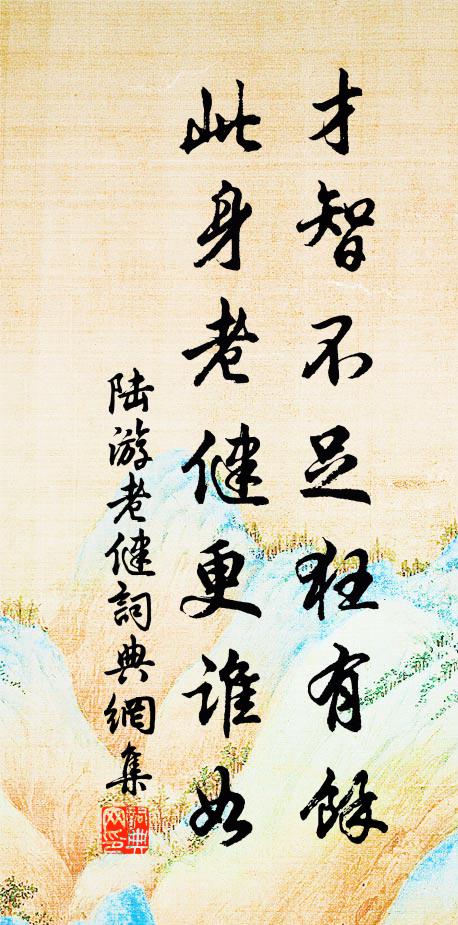 才智不足狂有餘
此身老健更誰如
陆游老健詞典網集
詞典
网印